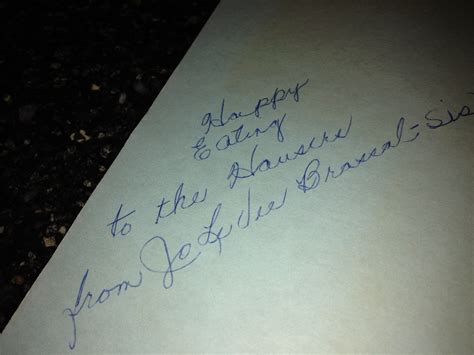 Happy
Eating
to the Hausers
from Jo Brassal = Sis